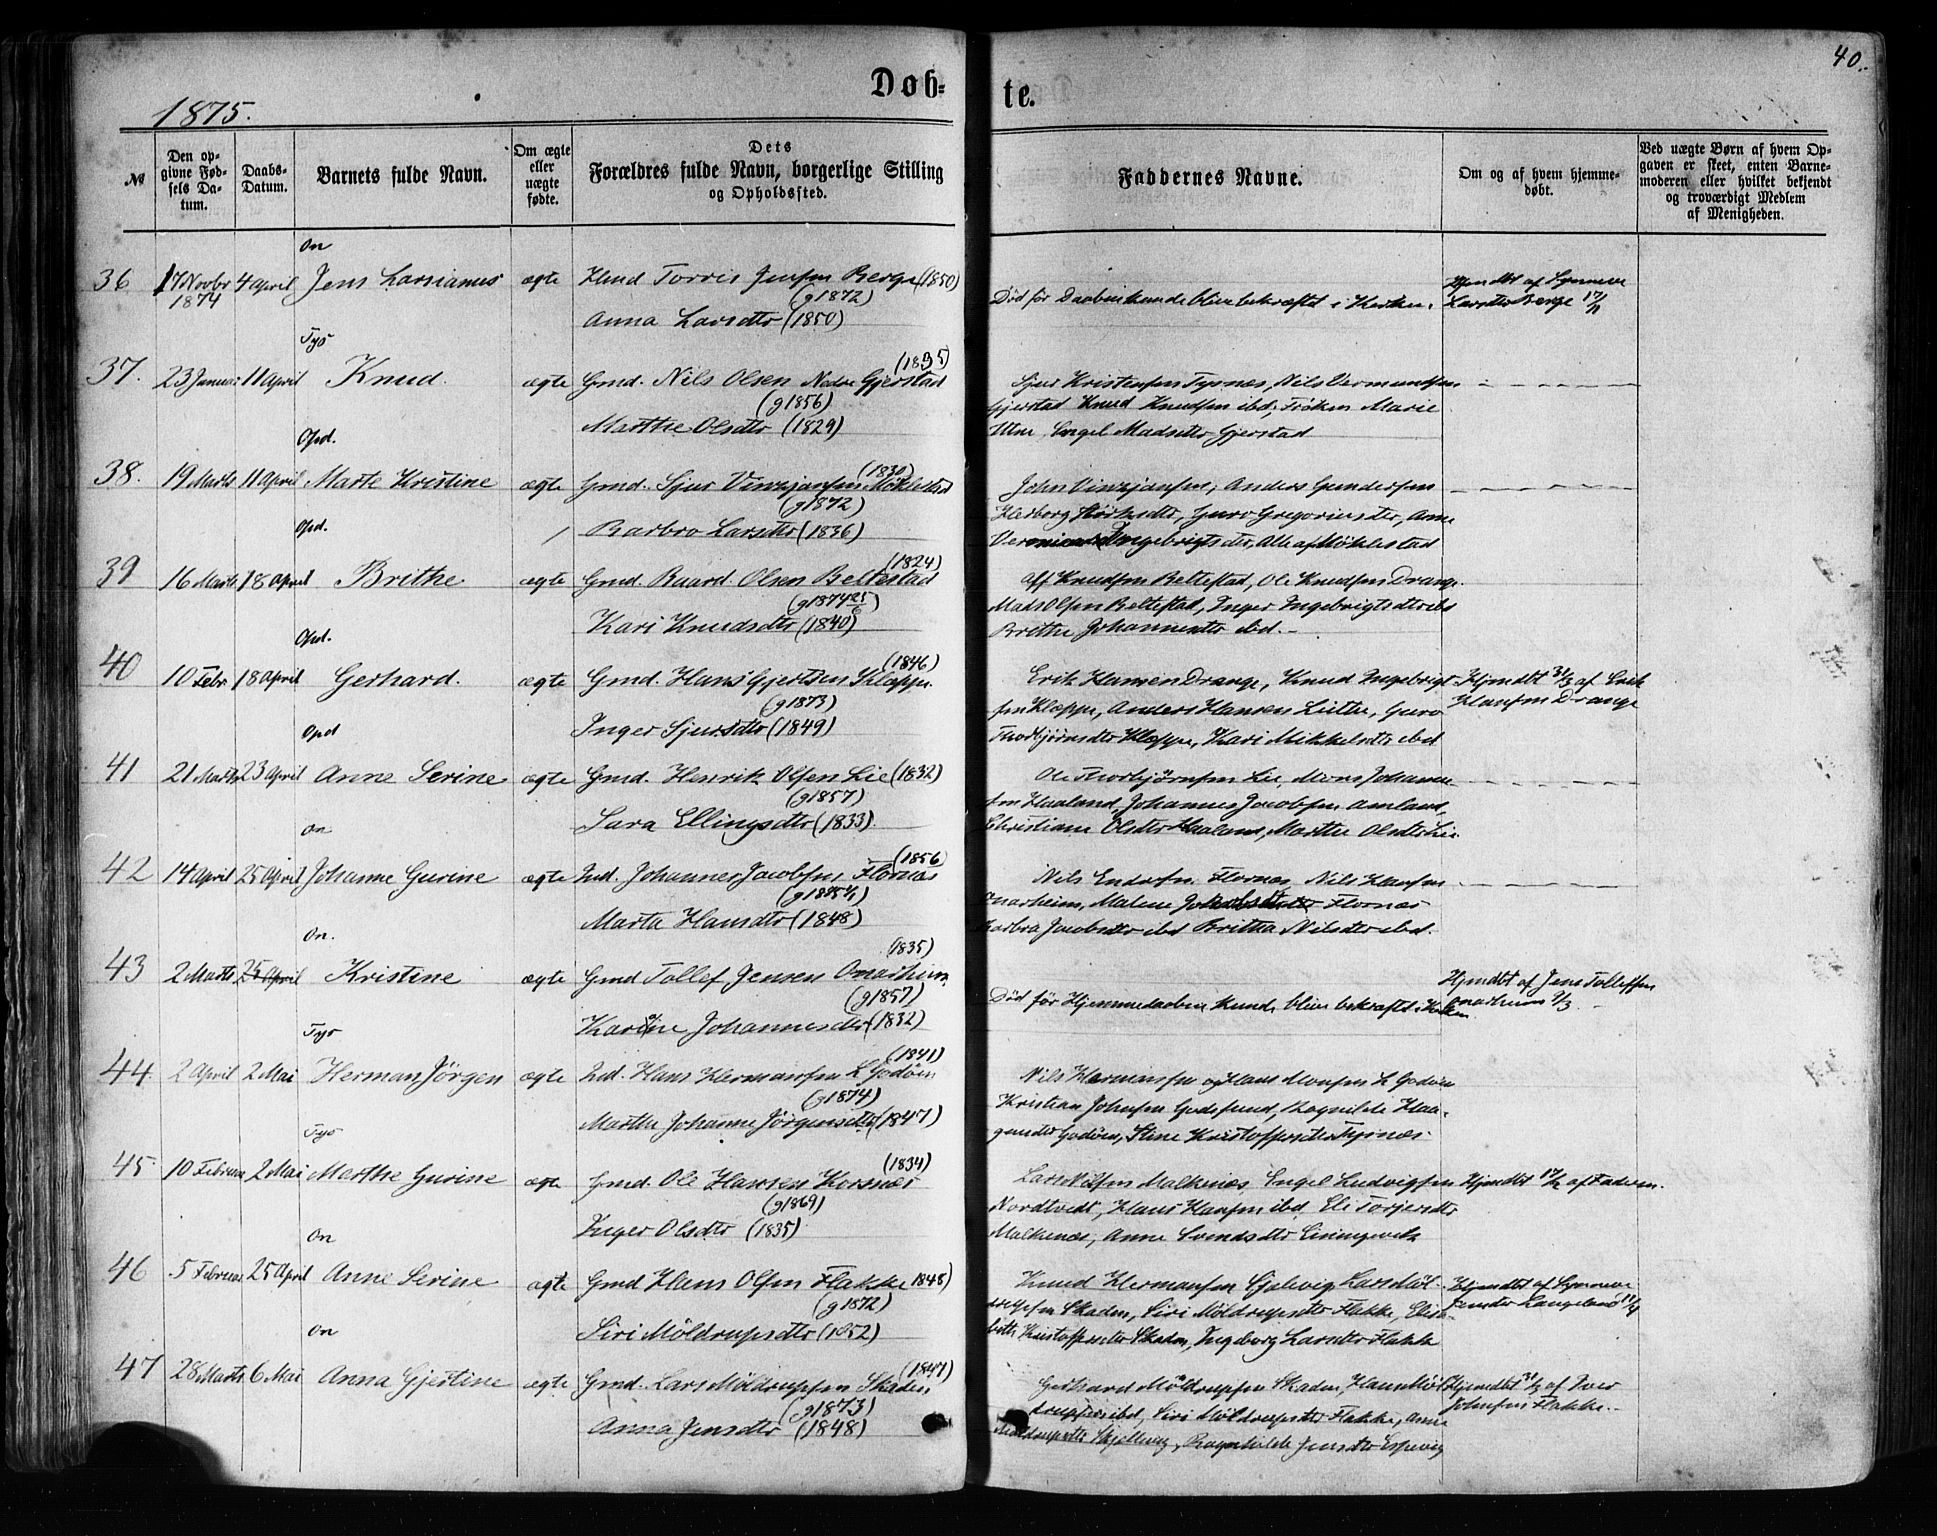 40.
Døb-
te.
1875.
№
Den opgivne Fødsels Datum.
Daabs-Datum.
Barnets fulde Navn.
Om ægte eller uægte fødte.
Dets Forældres fulde Navn, borgerlige Stilling og Opholdssted.
Faddernes Navne.
Om og af hvem hjemmedøbt.
Ved uægte Børn af hvem Opgaven er skeet, enten Barnemoderen eller hvilket bekjendt og troværdigt Medlem af Menigheden.
On
36 17 Novbr 1874 4 April Jens Larsianus ægte Torris Jensen Berge (1850)
(g1872)
Anna Larsdtr (1850)
Død før Daaben kunde blive bekræftet i Kirken.
Hjmdbt af Synneve
Larsdtr Berge 17/11
Tys
37. 23 Januar 11 April Knud. ægte Gmd. Nils Olsen Nedre Gjerstad (1835)
(g1856)
Marthe Olsdtr (1829)
Sjur Kristensen Tysnes, Nils Vermundsen
Gjerstad Knud Knudsen ibd, Frøken Marie
Utne, Engel Madsdtr Gjerstad
Opd.
38. 19 Marts 11 April Marte Kristine ægte Gmd. Sjur Vinzjansen Møklestad (1830)
(g1872)
/ Barbro Larsdtr (1836)
John Vinzjansen, Anders Gundersen
Herborg, Guro Gregoriusdtr, Anne
Ingebrigtsdtr, Alle af Møklestad
Opd.
39 16 Marts 18 April Brithe ægte Gmd. Baard Olsen Beltestad (1824)
(g1874 25/6)
Kari Knudsdtr (1840)
Knudsen Beltestad, Ole Knudsen Drange
Mads Olsen Beltestad, Inger Ingebrigtsdtr ibd
Brithe Johannesdtr ibd.
Opd.
40 10 Febr. 18 April Gerhard. ægte Gmd. Hans Gjertsen Kleppe (1846)
(g1873)
Inger Sjursdtr (1849)
Erik Hansen Drange, Knud Ingebrigt-
sen Kleppe, Anders Hansen Leite, Guro
Thorbjørnsdtr Kleppe, Kari Mikkelsdtr ibd
Hjmdbt 31/3 af Erik
Hansen Drange
Opd
41 21 Marts 23 April Anne Serine ægte Gmd. Henrik Olsen Lie (1832)
(g1857)
Sara Ellingsdtr (1833)
Ole Thorbjørnsen Lie, Mons Johanne-
sen Haaland, Johannes Jacobsen Amland,
Christiane Olsdtr Haaland, Marthe Olsdtr Lie
On
42 14 April 25 April Johanne Gurine ægte Ind. Johannes Jacobsen Flornes (1856)
Marta Hansdtr (1848)
Nils Endresen Flornes, Nils Hansen
Onarheim, Malene Flornes
Barbra Jacobsdtr ibd Britha Nilsdtr ibd.
On.
43 2 Marts 25 April Kristine ægte Gmd Tollef Jensen Onarheim (1835)
(g1857)
Karine Johannesdtr (1832)
Død før Hjemmedaaben kunde blive bekræftet i Kirken
Hjmdbt af Jens Tollefsen
Onarheim
Tys
44. 2 April 2 Mai Herman Jörgen ægte Ind. Hans Hermansen L Godøen (1841)
(g1874)
Marthe Johanne Jörgensdtr (1847)
Nils Hermansen og Hans Monsen L Godøen
Kristian Johnsen Godøsund, Ragnilde Haa-
gensdtr Godøen, Stine Kristoffersdtr Tysnes
Tys
45 10 Februar 2 Mai Marthe Gurine ægte Gmd. Ole Hansen Korsnes (1834)
(g1869)
Inger Olsdtr (1835)
Lars Nilsen Malkenes, Engel Ludvigsen
Nordtvedt, Hans Hansen ibd, Eli Torjersdtr
Malkenes, Anne Svendsdtr
Hjmdbt af Faderen.
On
46 5 Februar 25 April Anne Serine ægte Gmd Hans Olsen Flakke (1848)
(g1872)
Siri Möldrupsdtr (1852)
Knud Hermansen, Lars Möl-
drupsen Skaden, Siri Möldrupsdtr Flakke, Elisa-
beth Kristoffersdtr Skaden, Ingeborg Larsdtr Flakke
Hjmdbt af Synneve
Langeland
On
47 28 Marts 6 Mai Anna Gjertine ægte Gmd. Lars Möldrupsen Skaden (1847)
(g1873)
Anna Jensdtr (1848)
Gerhard Möldrupsen Skaden, Hans Möl-
drupsen ibd, Siri Möldrupsdtr Flakke, Anne
Möldrupsdtr, Ragnhilde Jensdtr Espevig
Hjmdbt af Iver
Johnsen Flakke.